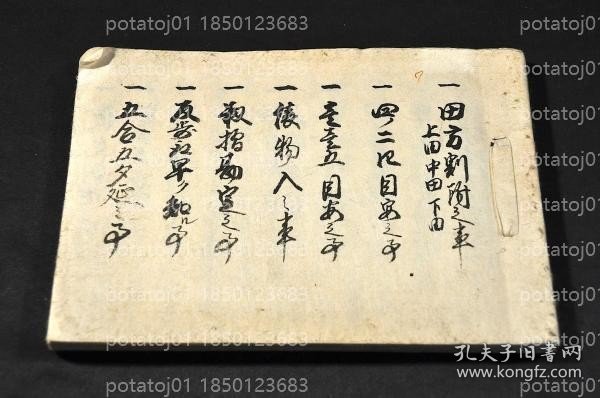 一 田方割附之事
上田中田下田
一 四ツ二分目安之事
一 壱壱五目安之事
一 俵物入之事
一 勘定之事
一 之事
一 五合五夕延之事
potatoj01 1850123683
potatoj01 1850123683
potatoj01 1850123683
potatoj01 1850123683
potatoj01 1850123683
potatoj01 1850123683
potatoj01 1850123683
potatoj01 1850123683
potatoj01 1850123683
potatoj01 1850123683
孔夫子旧书网
www.kongfz.com